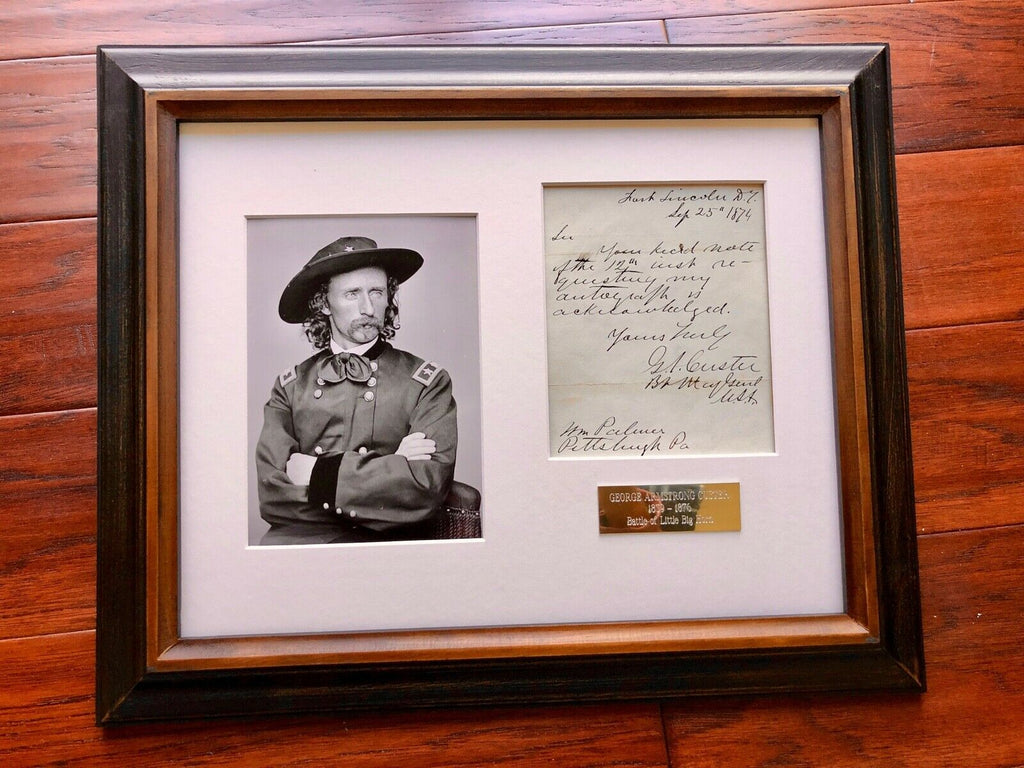 Fort Lincoln D.T.
Sep 25" 1874
Sir
Your kind note
of the 12th inst re-
questing my
autograph is
acknowledged.
Yours Truly
G. A. Custer
Bt Maj Genl
USA
Wm Palmer
Pittsburgh Pa
GEORGE ARMSTRONG CUSTER
1839 - 1876
Battle of Little Big Horn